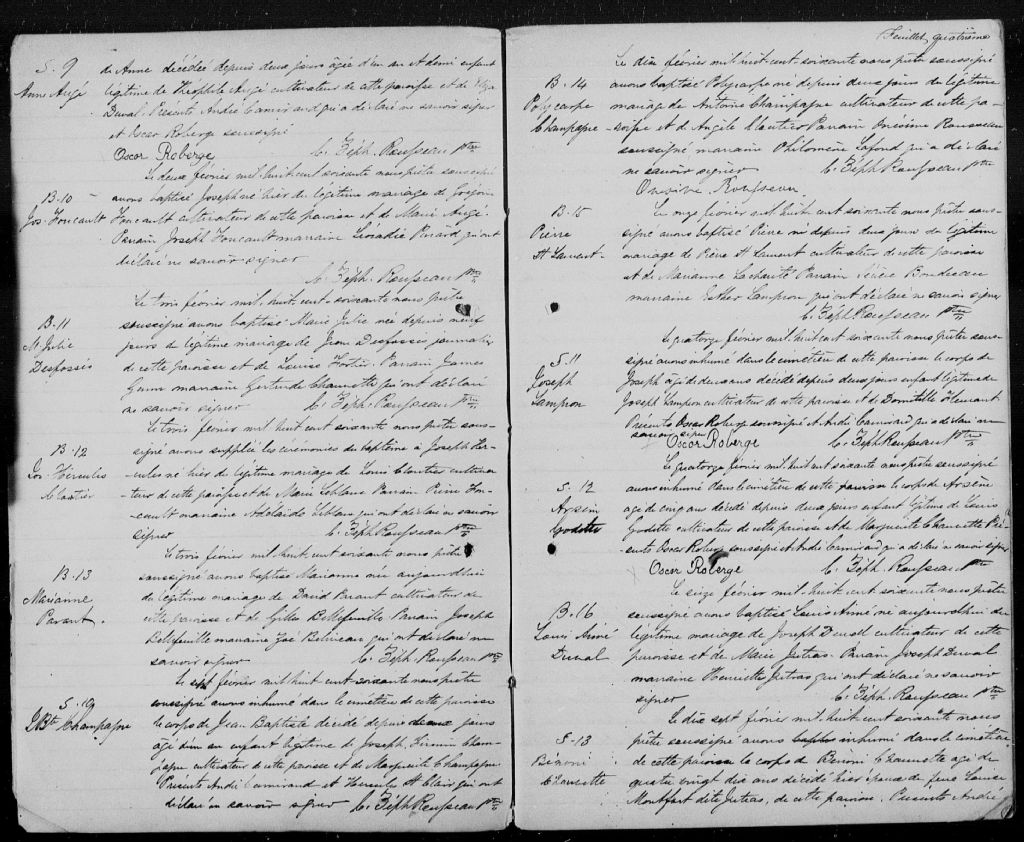 S. 9
Anne Augé
de Anne décédée depuis deux jours âgée d'un an et demi enfant
légitime de Théophile Augé cultivateur de cette paroisse et de
Duval. Présents André Camirand qui a déclaré ne savoir signer
et Oscar Roberge soussigné
Oscar Roberge C. Zéph. Rousseau Ptre
B. 10
Jos. Foucault
Le deux février mil huit cent soixante nous prêtre soussigné
avons baptisé Joseph né hier du légitime mariage de
Foucault cultivateur de cette paroisse et de Marie Augé.
Parrain Joseph Foucault marraine Léocadie Picard qui ont
déclaré ne savoir signer
C. Zéph. Rousseau Ptre
B. 11
M. Julie
Desfossés
Le trois février mil huit cent soixante nous prêtre
soussigné avons baptisé Marie Julie née depuis neuf
jours du légitime mariage de Jean Desfossés journalier
de cette paroisse et de Louise Fortier. Parrain James
Gunn marraine Gertrude Chaurette qui ont déclaré
ne savoir signer C. Zéph. Rousseau Ptre
B. 12
Jos. Hercules
Cloutier
Le trois février mil huit cent soixante nous prêtre sous-
signé avons suppléé les cérémonies du baptême à Joseph Her-
-cules né hier du légitime mariage de Louis Cloutier cultiva-
-teur de cette paroisse et de Marie Leblanc Parrain Pierre Fou-
-cault marraine Adelaide Leblanc qui ont déclaré ne savoir
signer C. Zéph. Rousseau Ptre
B. 13
Marianne
Parant.
Le trois février mil huit cent soixante nous prêtre
soussigné avons baptisé Marianne née aujourd'hui
du légitime mariage de David Parant cultivateur de
cette paroisse et de Gilles Bellefeuille Parrain Joseph
Bellefeuille marraine qui ont déclaré ne
savoir signer C. Zéph. Rousseau Ptre
S. 10
J. Bte Champagne
Le sept février mil huit cent soixante nous prêtre
soussigné avons inhumé dans le cimetière de cette paroisse
le corps de Jean Baptiste décédé depuis deux jours
âgé d'un an enfant légitime de Joseph Firmin Cham-
pagne cultivateur de cette paroisse et de Marguerite Champagne
Présents André Camirand et Hercules St Clair qui ont
déclaré ne savoir signer C. Zéph. Rousseau Ptre
Feuillet quatrième
B. 14
Polycarpe
Champagne
Le dix février mil huit cent soixante nous prêtre soussigné
avons baptisé Polycarpe né depuis deux jours du légitime
mariage de Antoine Champagne cultivateur de cette pa-
-roisse et d'Angèle Cloutier Parrain Onésime Rousseau
soussigné marraine Philomène Lafond qui a déclaré
ne savoir signer C. Zéph. Rousseau Ptre
Onésime Rousseau
B. 15
Pierre
St Laurent
Le onze février mil huit cent soixante nous prêtre sous-
signé avons baptisé Pierre né depuis deux jours du légitime
mariage de Pierre St Laurent cultivateur de cette paroisse
et de Marianne Lacharité Parrain Boudreau
marraine Esther Lampron qui ont déclaré ne savoir signer
C. Zéph. Rousseau Ptre
S. 11
Joseph
Lampron
Le quatorze février mil huit cent soixante nous prêtre sous-
signé avons inhumé dans le cimetière de cette paroisse le corps de
Joseph âgé de deux ans décédé depuis deux jours enfant légitime de
Joseph Lampron cultivateur de cette paroisse et de Domitille
Présents Oscar Roberge soussigné et André Camirand qui a déclaré ne
savoir signer
Oscar Roberge C. Zéph. Rousseau Ptre
S. 12
Arsène
Godette
Le quatorze février mil huit cent soixante nous prêtre soussigné
avons inhumé dans le cimetière de cette paroisse le corps de Arsène
âgé de cinq ans décédé depuis deux jours enfant légitime de Louis
Godette cultivateur de cette paroisse et de Marguerite Chaurette Pré-
sents Oscar Roberge soussigné et André Camirand qui a déclaré ne savoir signer
Oscar Roberge C. Zéph. Rousseau Ptre
B. 16
Louis Aimé
Duval
Le seize février mil huit cent soixante nous prêtre
soussigné avons baptisé Louis Aimé né aujourd'hui du
légitime mariage de Joseph Duval cultivateur de cette
paroisse et de Marie Jutras Parrain Joseph Duval
marraine Henriette Jutras qui ont déclaré ne savoir
signer C. Zéph. Rousseau Ptre
S. 13
Bénoni
Chaurette
Le dix sept février mil huit cent soixante nous
prêtre soussigné avons inhumé dans le cimetière
de cette paroisse le corps de Bénoni Chaurette âgé de
quatre vingt dix ans décédé hier époux de feue Louise
Montfort dite Jutras, de cette paroisse. Présents André